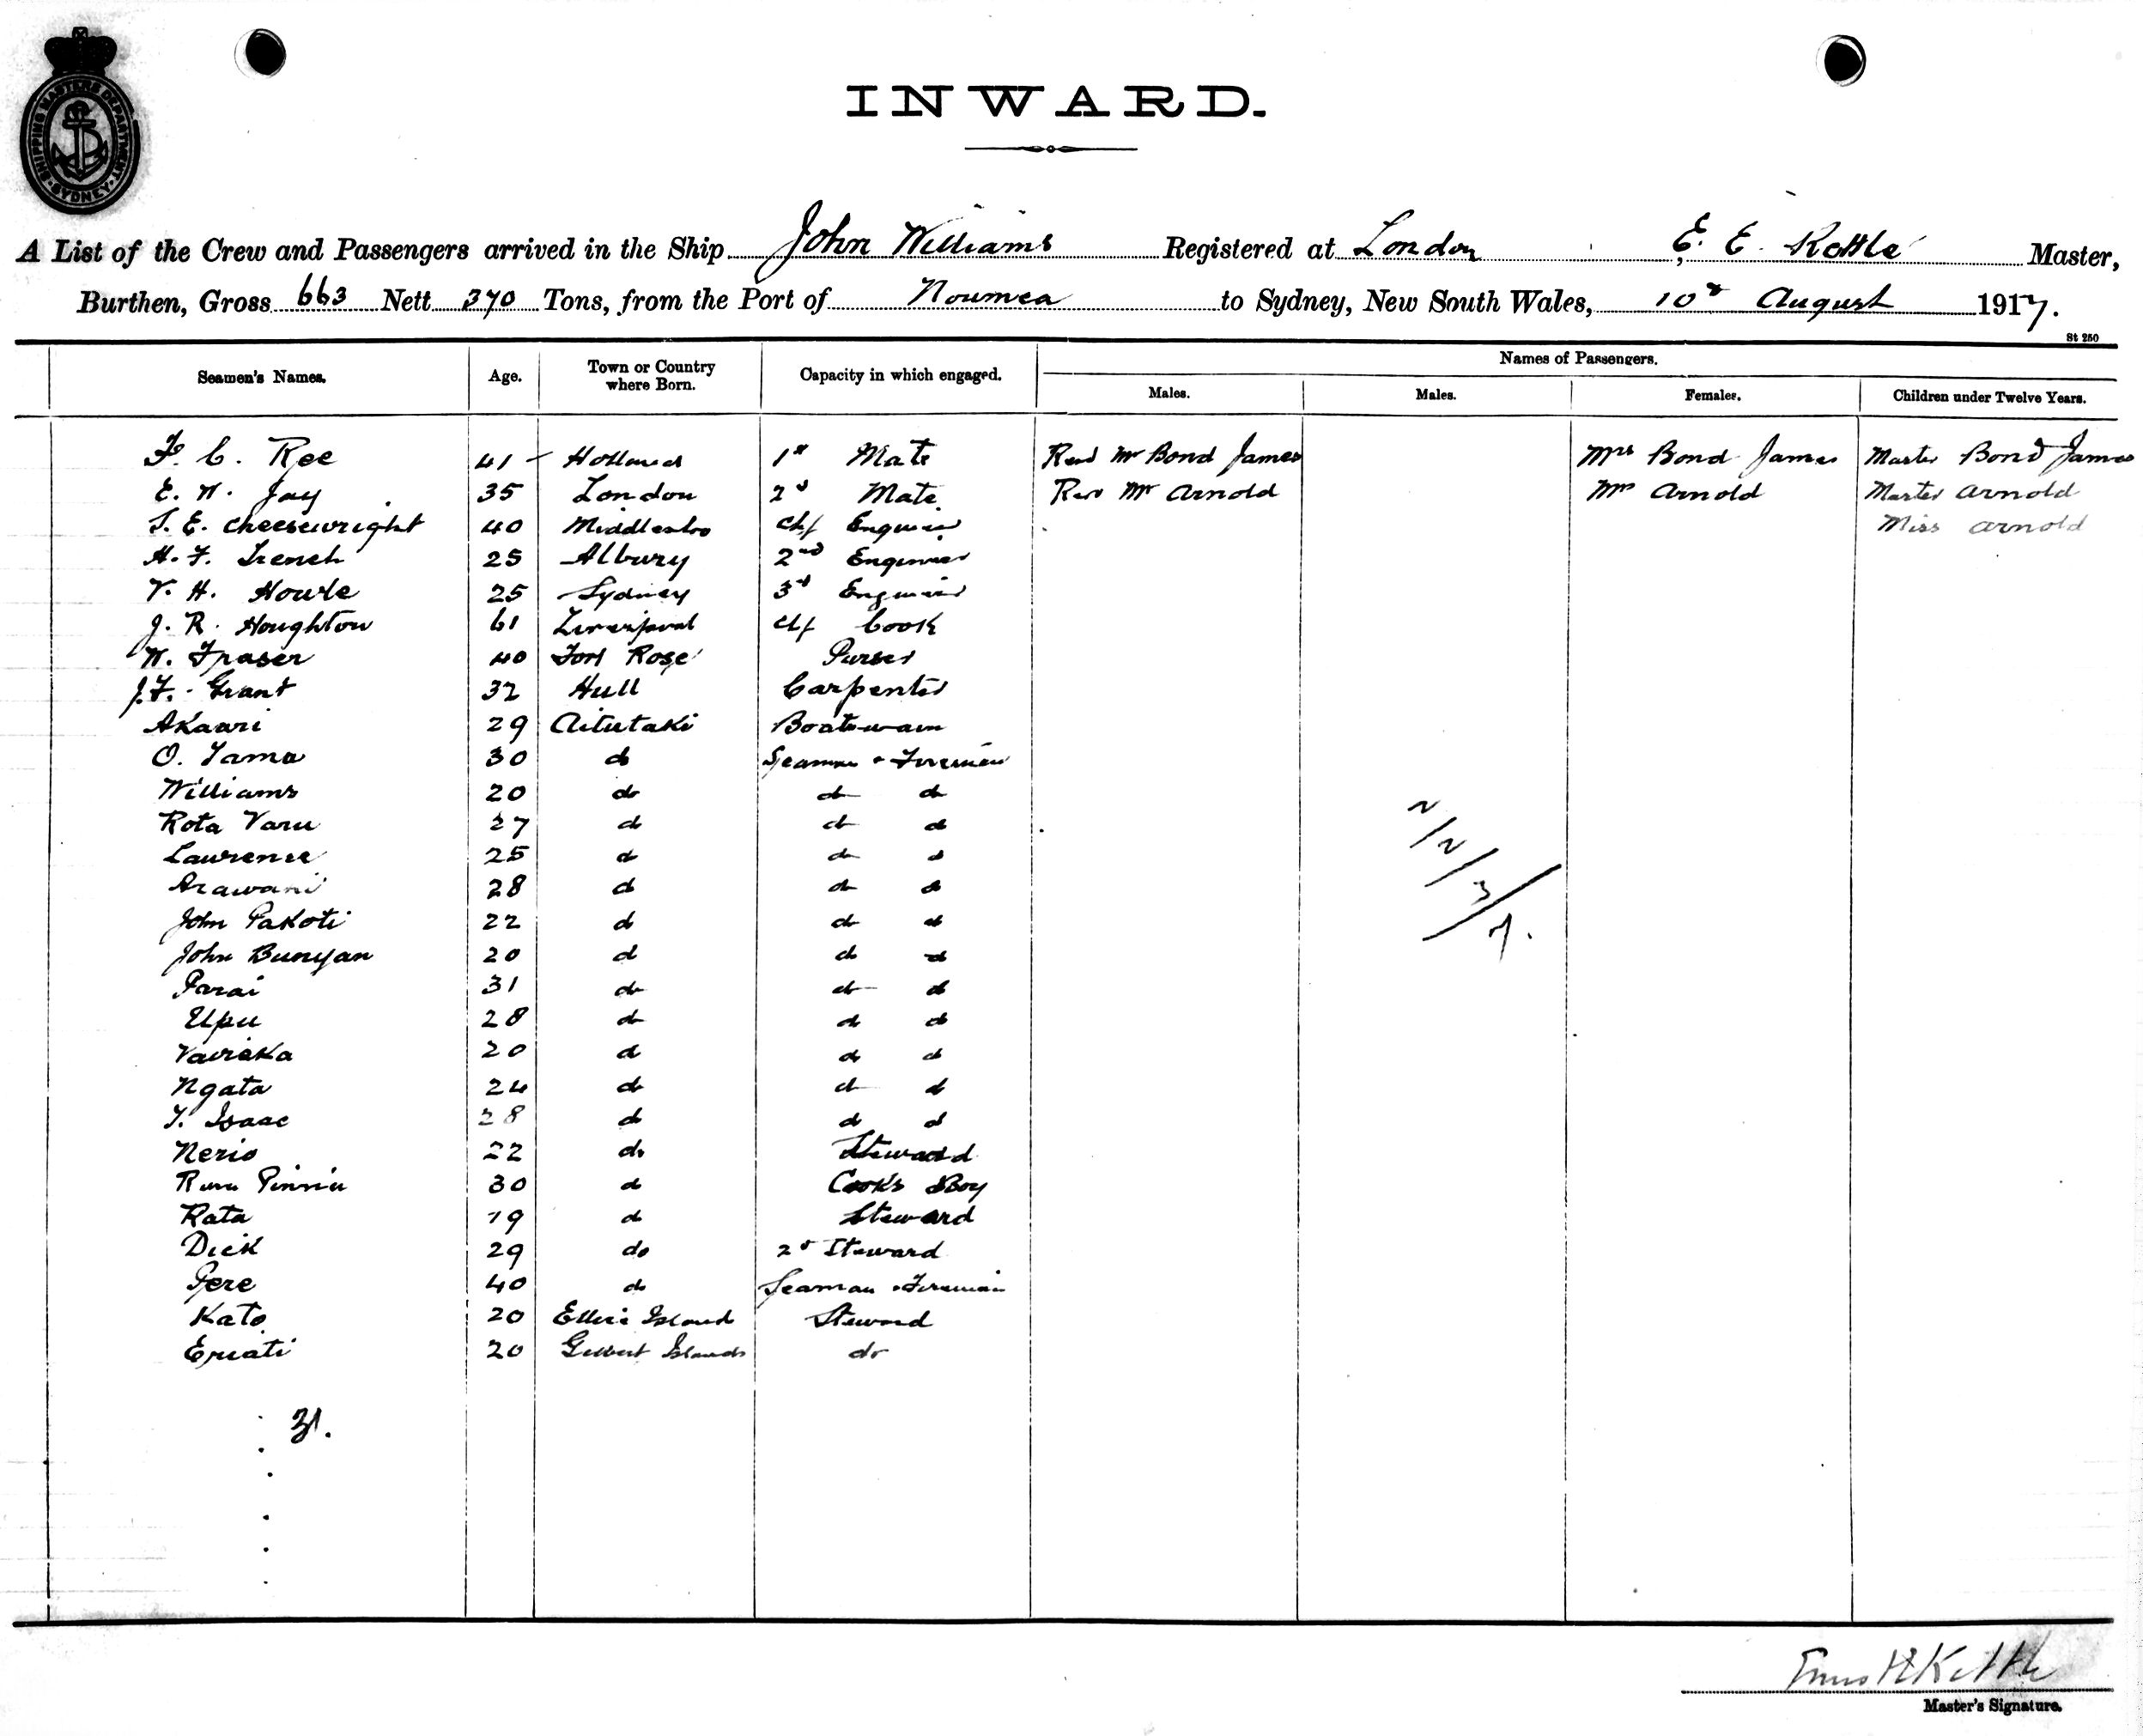 SHIPPING MASTERS DEPARTMENT
SYDNEY
INWARD.
A List of the Crew and Passengers arrived in the Ship John Williams Registered at London, E. E. Kettle Master,
Burthen, Gross 663 Nett 370 Tons, from the Port of Noumea to Sydney, New South Wales, 10th August 1917.
St 250
Seamen's Names. Age. Town or Country where Born. Capacity in which engaged. Names of Passengers.
Males. Males. Females. Children under Twelve Years.
F. C. Ree 41 Holland 1st Mate Revd Mr Bond James Mrs Bond James Master Bond James
E. W. Jay 35 London 2d Mate Rev Mr Arnold Mrs Arnold Master Arnold
S. E. Cheesewright 40 Middlesbro Chf Engineer Miss Arnold
H. F. Trench 25 Albury 2nd Engineer
V. H. Howle 25 Sydney 3rd Engineer
J. R. Houghton 61 Liverpool Chf Cook
W. Fraser 40 Fort Rose Purser
J. F. Grant 32 Hull Carpenter
Akaari 29 Aitutaki Boatswain
O. Tama 30 do Seaman & Fireman
Williams 20 do do do
Rota Varu 27 do do do
Lawrence 25 do do do
Arawani 28 do do do
John Pakoti 22 do do do
John Bunyan 20 do do do
Parai 31 do do do
Upu 28 do do do
Vaireka 20 do do do
Ngata 24 do do do
T. Isaac 28 do do do
Nerio 22 do Steward
30 do Cooks Boy
Rata 19 do Steward
Dick 29 do 2d Steward
Pere 40 do Seaman & Fireman
Kato 20 Ellice Island Steward
Eriati 20 Gilbert Islands do
2/2/3/7.
31.
Kettle
Master's Signature.